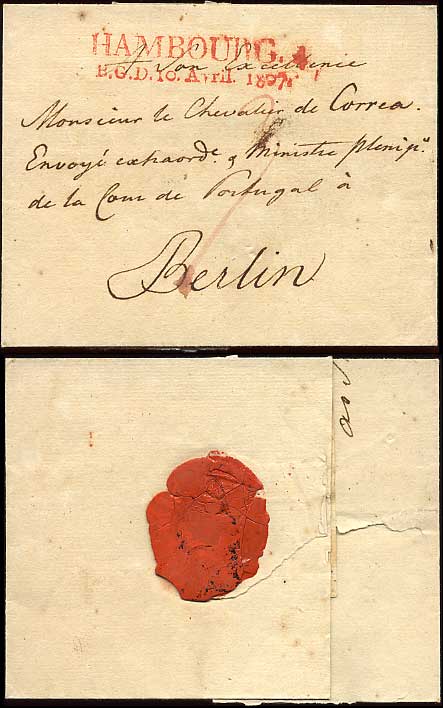 HAMBOURG.
B.G.D. 10. Avril. 1807.
A Son Excellence
Monsieur le Chevalier de Correa.
Envoyé extraord.e & Ministre plenip.
de la Cour de Portugal à
Berlin